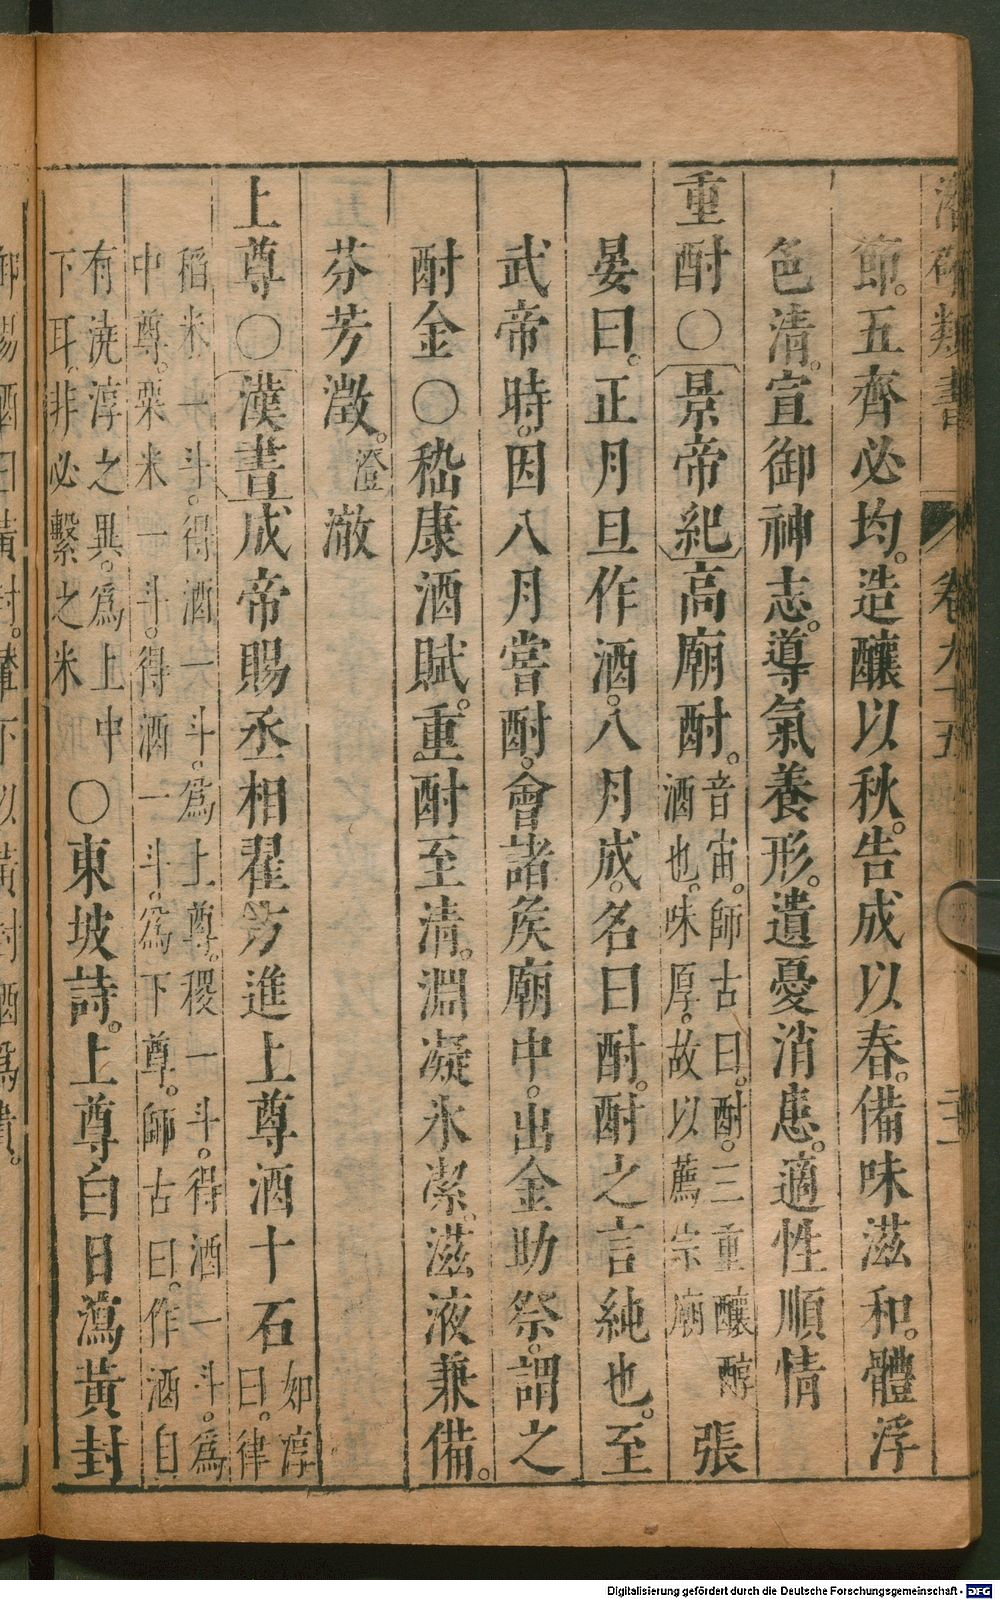 潛確類書 卷九十五
節。五齊必均。造釀以秋。告成以春。備味滋和。體浮
色清。宣御神志。導氣養形。遺憂消患。適性順情
重酎〇景帝紀高廟酎。音宙。師古曰。酎。三重釀醇酒也。味厚。故以薦宗廟 張
晏曰。正月旦作酒。八月成。名曰酎。酎之言純也。至
武帝時。因八月嘗酎。會諸矦廟中。出金助祭。謂之
酎金〇嵇康酒賦。重酎至清。淵凝氷潔。滋液兼備。
芬芳澂。澄澈
上尊〇漢書成帝賜丞相翟方進上尊酒十石如淳曰。律
稻米一斗。得酒一斗。爲上尊。稷一斗。得酒一斗。爲
中尊。粟米一斗。得酒一斗。爲下尊。師古曰。作酒自
有澆淳之異。爲上中
下耳。非必繫之米 〇東坡詩。上尊白日瀉黃封
御賜酒曰黃封。輦下以黃封酒爲貴。
Digitalisierung gefördert durch die Deutsche Forschungsgemeinschaft - DFG